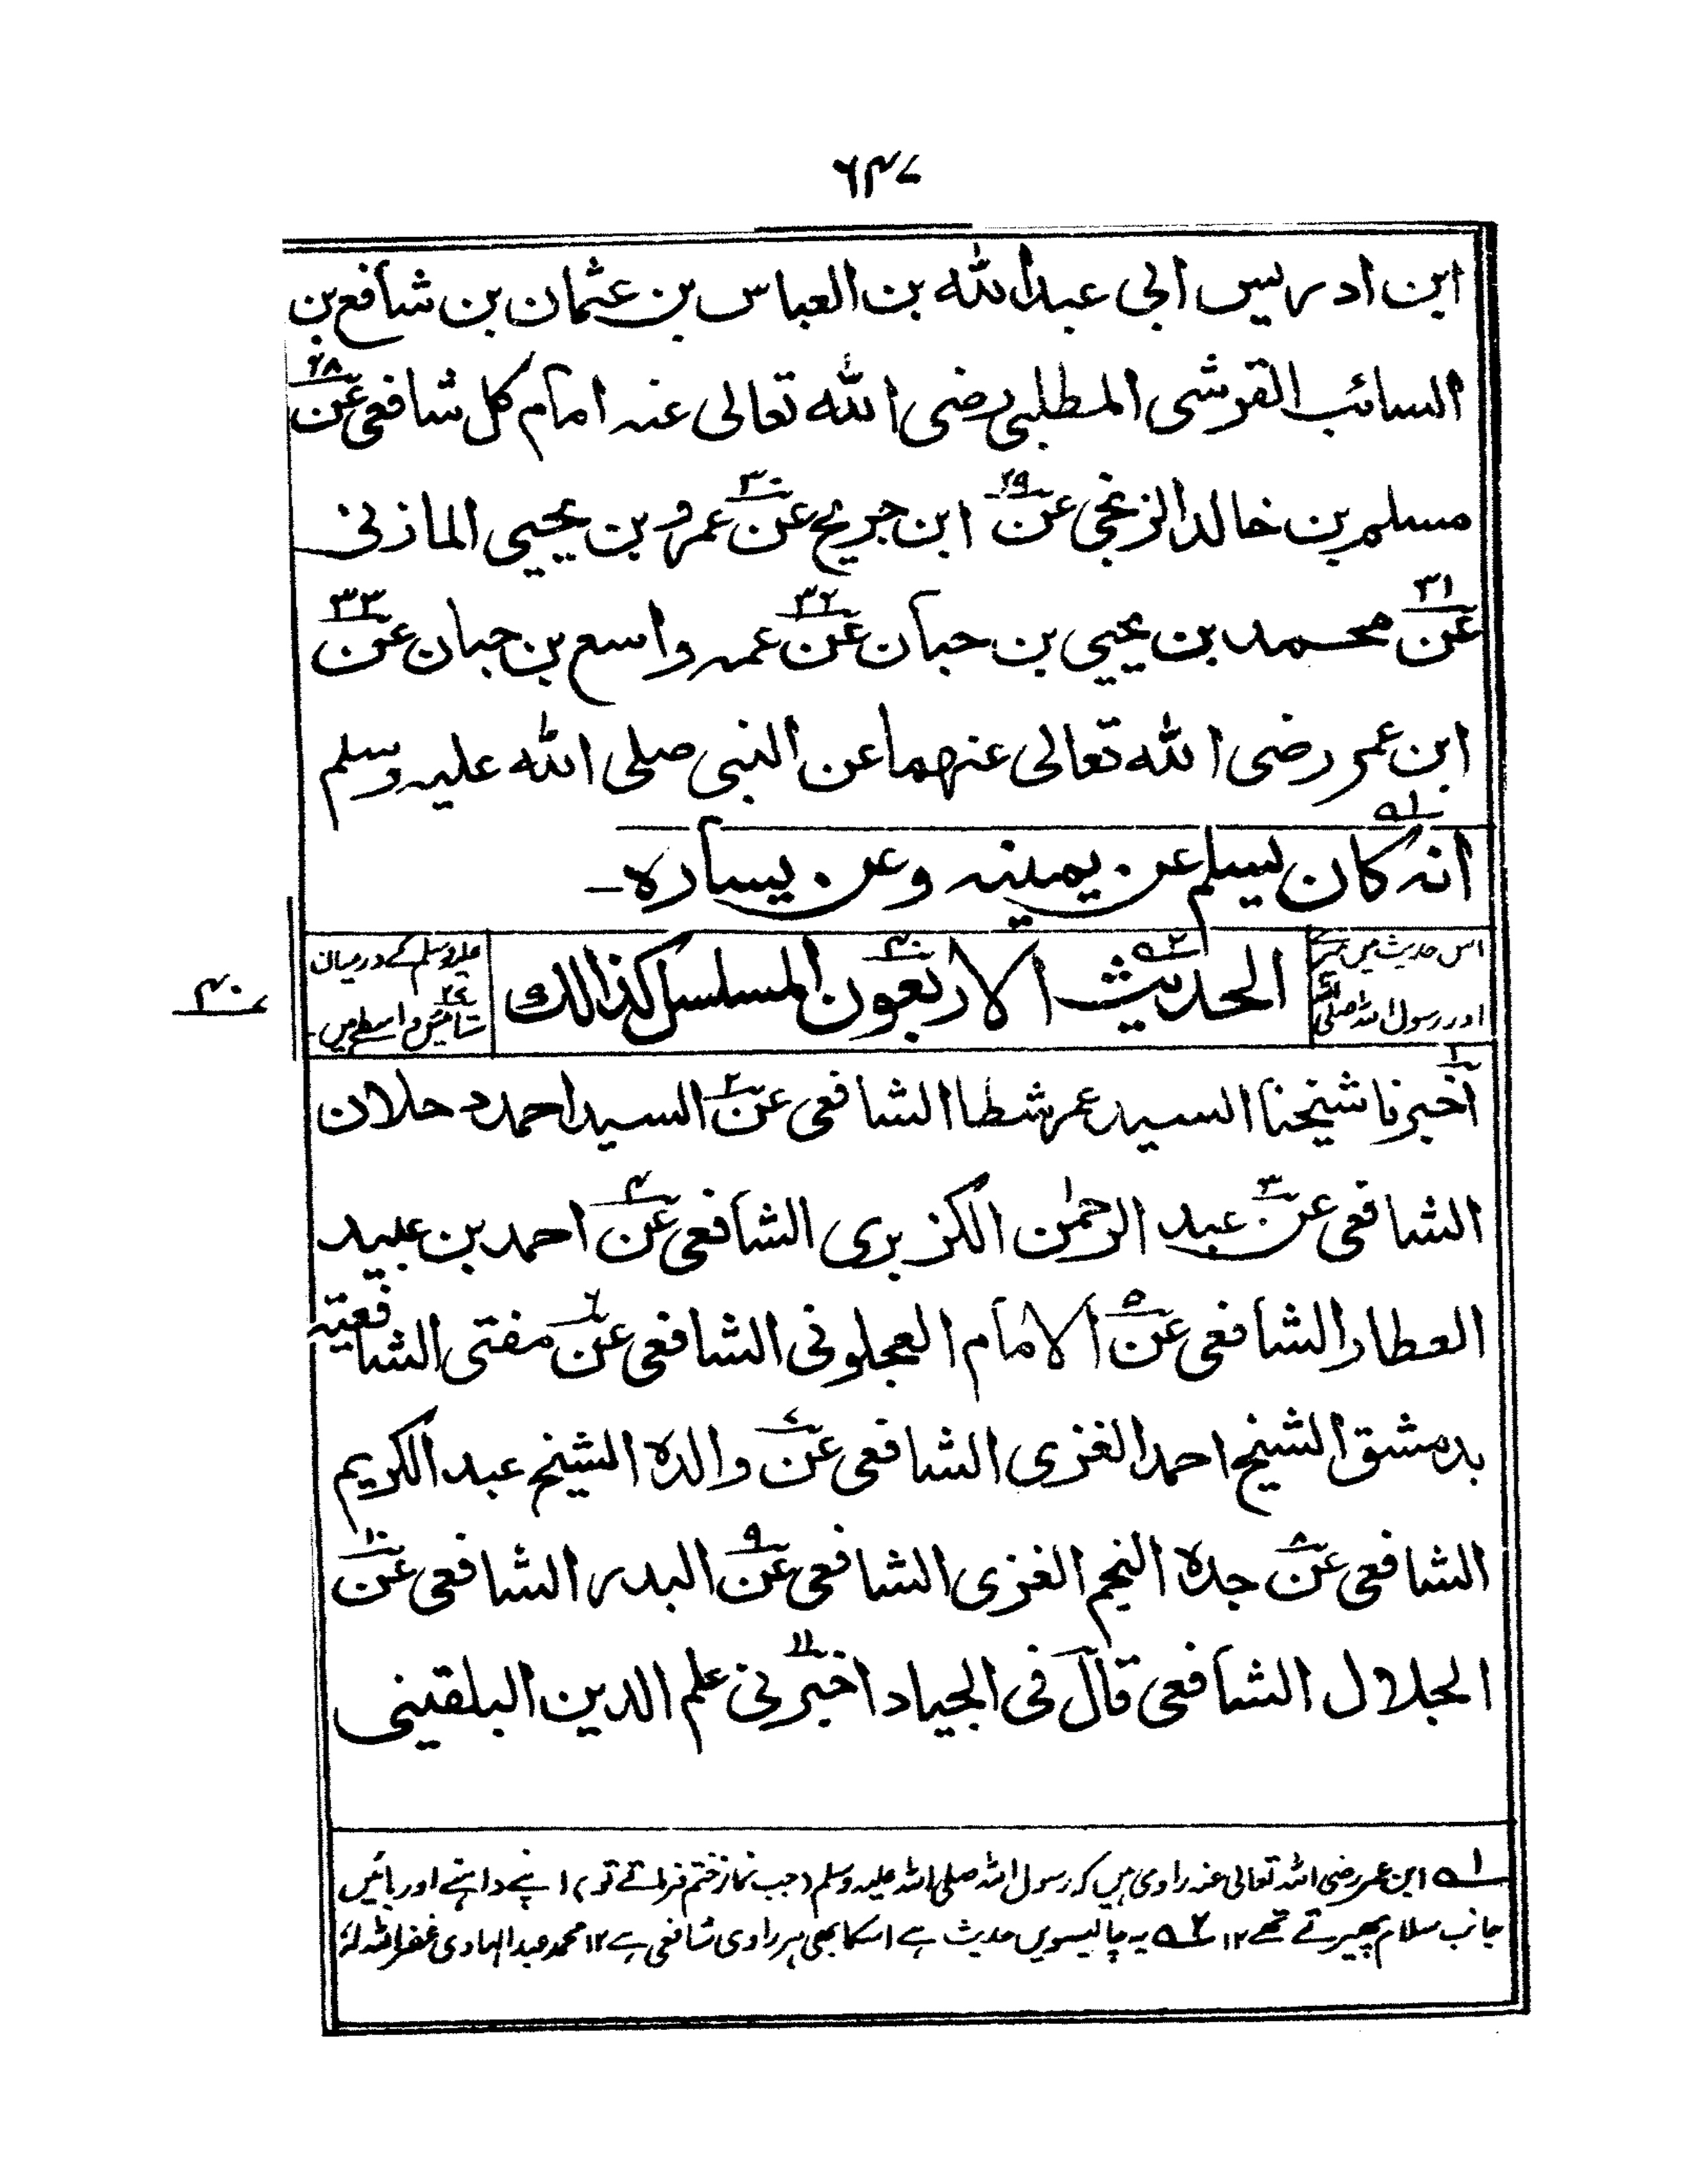 ۶۴۷
ابن ادريس ابى عبدالله بن العباس بن عثمان بن شافع بن
السائب القرشى المطلبى رضى الله تعالى عنہ امام كل شافعى عن۲۸
مسلم بن خالد الزنجى عن۲۹ ابن جريج عن۳۰ عمرو بن يحيى المازنى
عن۳۱ محمد بن يحيى بن حبان عن۳۲ عمہ واسع بن حبان عن۳۳
ابن عمر رضى الله تعالى عنہما عن النبى صلى الله عليہ وسلم
انہ كان يسلم عن يمينہ وعن يساره۔ ؎۱
اس حدیث میں میرے
اور رسول اللہ صلی اللہ
الحديث ؎۲ الاربعون۴۰ المسلسل كذالك
علیہ وسلم کے درمیان
ستائیس۲۷ واسطے ہیں۔
۴۰
اخبرنا۱ شيخنا السيد عمر شطا الشافعى عن۲ السيد احمد دحلان
الشافعى عن۳ عبد الرحمٰن الكزبرى الشافعى عن۴ احمد بن عبيد
العطار الشافعى عن۵ الامام العجلونى الشافعى عن۶ مفتى الشافعيّہ
بدمشق الشيخ احمد الغزى الشافعى عن۷ والده الشيخ عبد الكريم
الشافعى عن۸ جده النجم الغزى الشافعى عن۹ البدر الشافعى عن۱۰
الجلال الشافعى قال فى الجياد اخبرنى۱۱ علم الدين البلقينى
؎۱ ابن عمر رضی اللہ تعالیٰ عنہ راوی ہیں کہ رسول اللہ صلی اللہ علیہ وسلم (جب نماز ختم فرماتے تو) اپنے داہنے اور بائیں
جانب سلام پھیرتے تھے ۱۲ ؎۲ یہ چالیسویں حدیث ہے اسکا بھی ہر راوی شافعی ہے ۱۲ محمد عبد الہادی غفر اللہ لہٗ